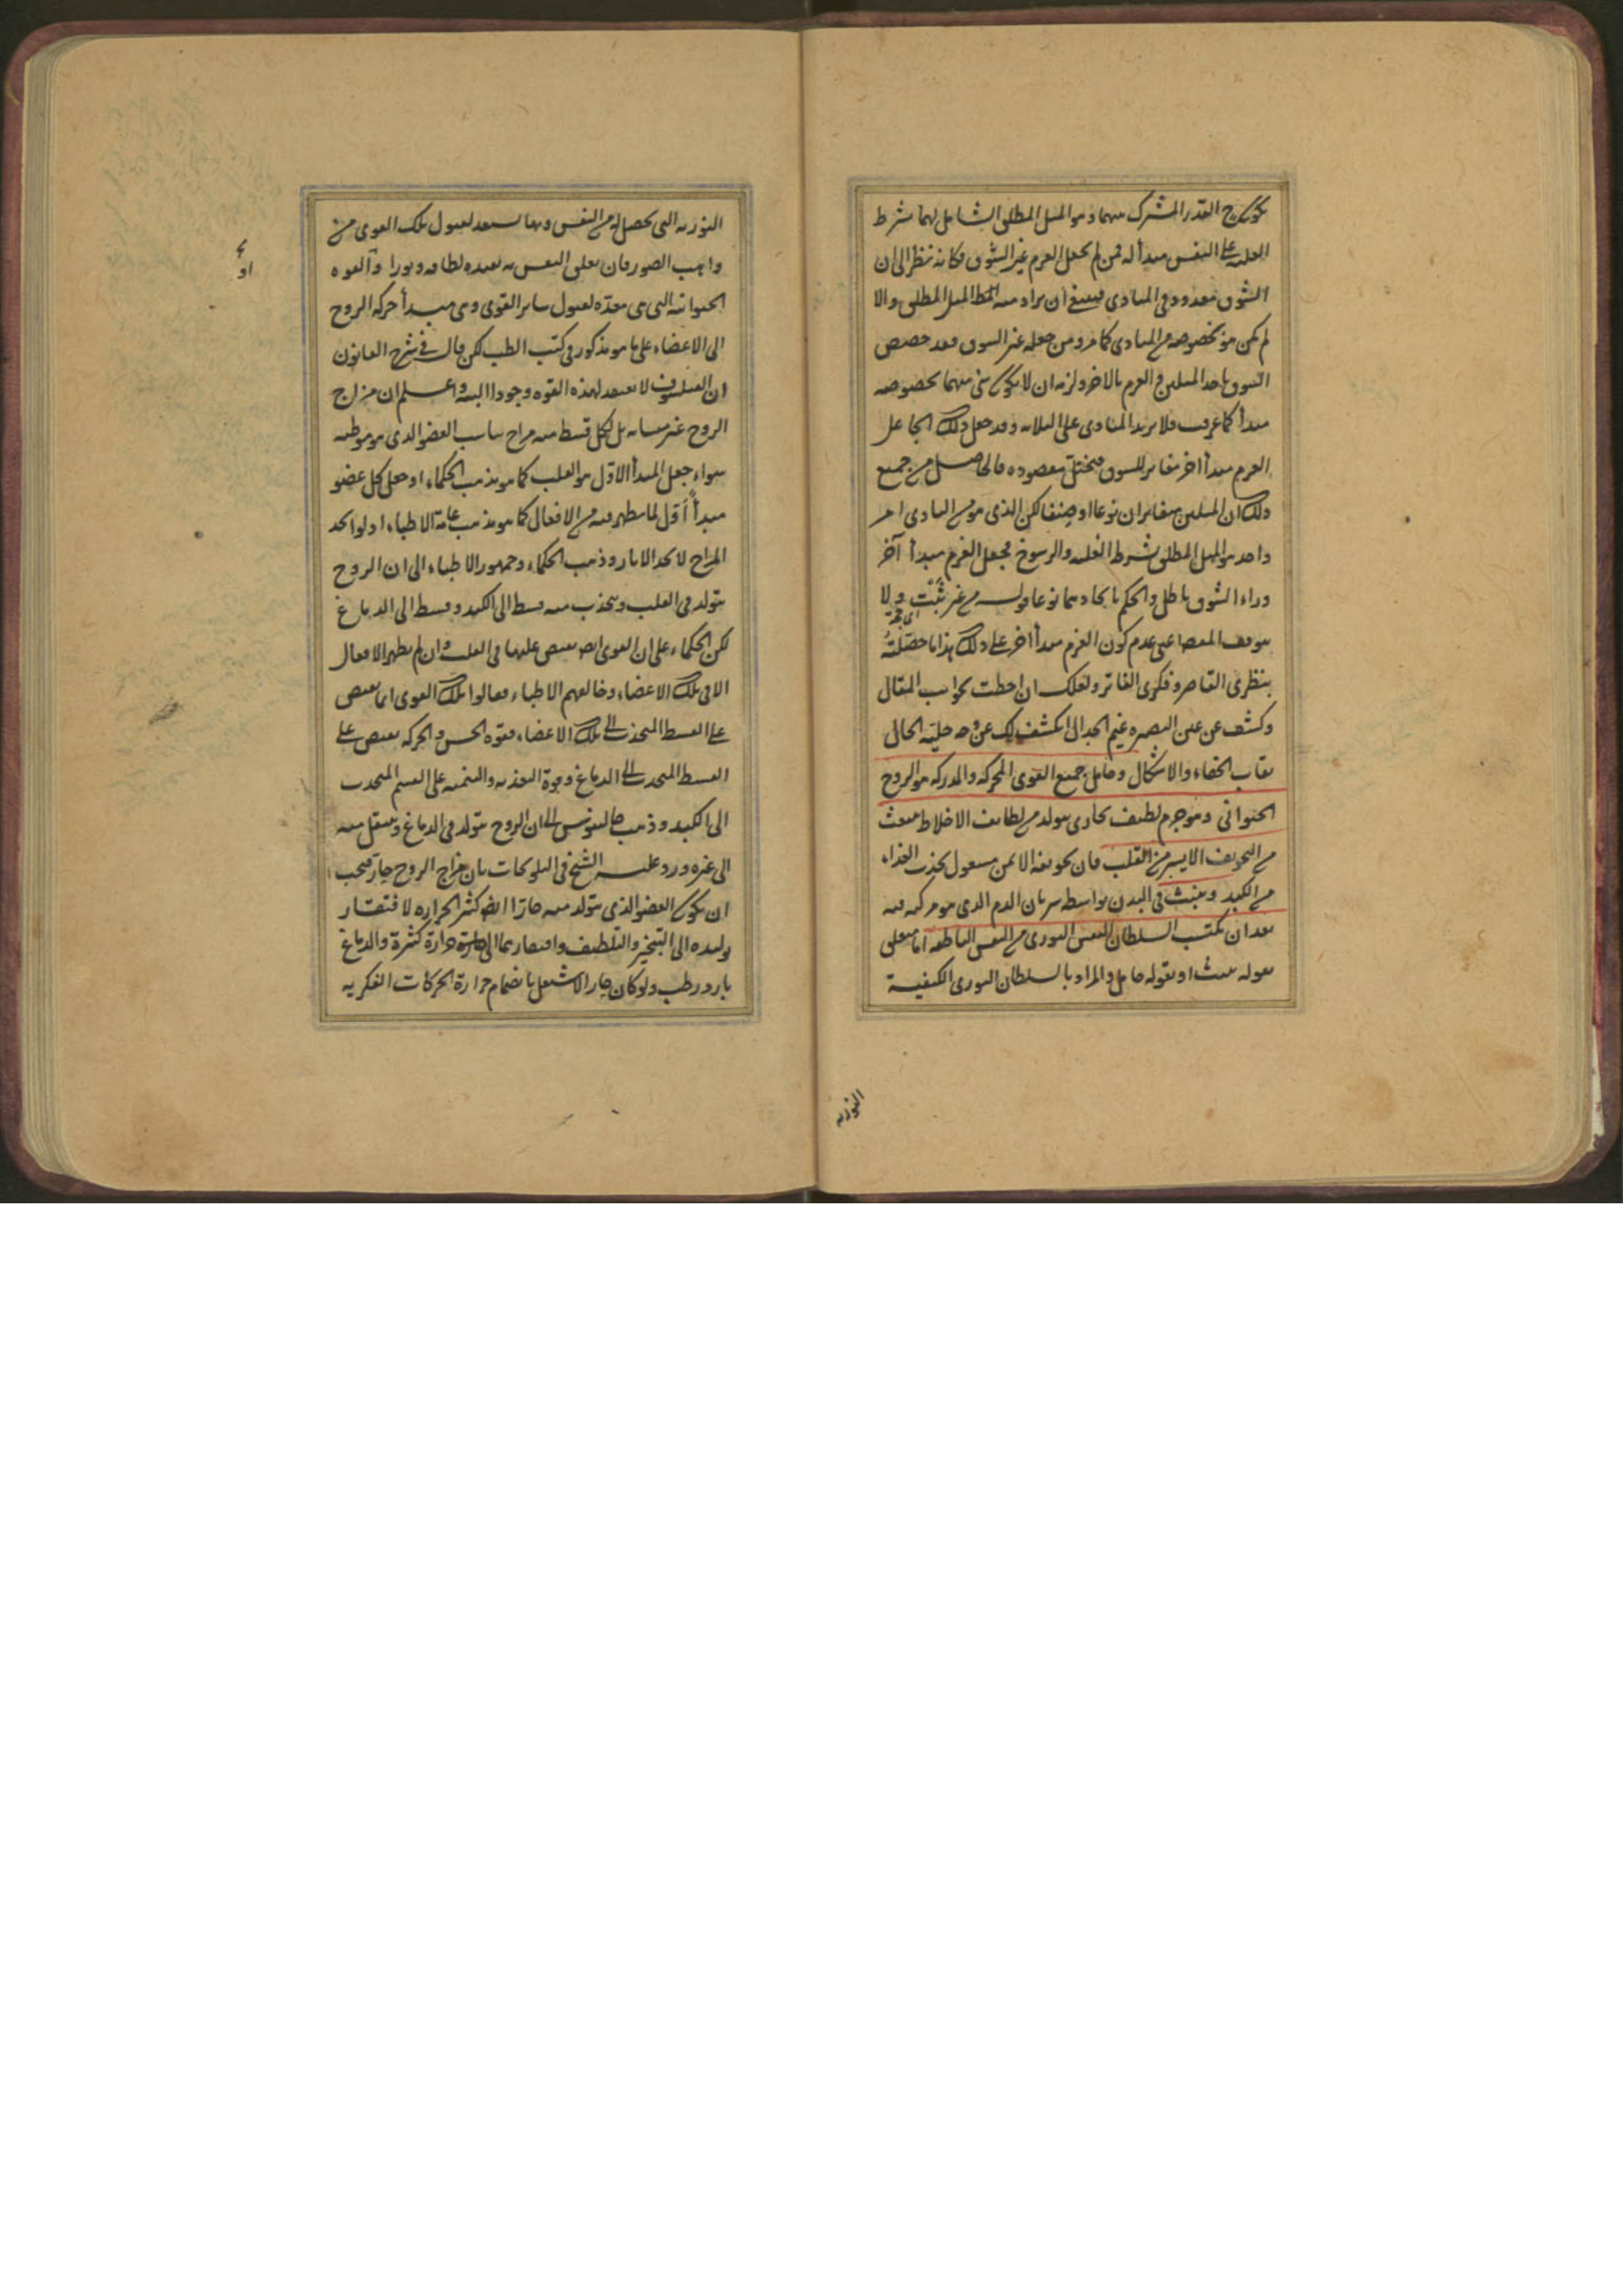 يكون ح القدر المشترك بينهما وهو الميل المطلق الشامل لهما بشرط
الغلبة على النفس مبدأ له فمن لم يجعل العزم غير الشوق فكانه نظر الى ان
الشوق معدود في المبادى فينبغي ان يراد منه الميل المطلق والا
لم يكن هو بخصوصه من المبادى كما مر ومن جعله غير الشوق فقد خصص
الشوق باحد الميلين والعزم بالاخر ولزمه ان لا يكون شي منهما بخصوصه
مبدأ كما عرفت فلا يزيد المبادى على الثلاثه وقد جعل ذلك الجاعل
العزم مبدأ اخر مغاير للشوق فيختل مقصوده فالحاصل من جميع
ذلك ان الميلين متغايران نوعا او صنفا لكن الذى هو من المبادى امر
واحد هو الميل المطلق بشرط الغلبه والرسوخ فجعل العزم مبدأ آخر
وراء الشوق باطل والحكم باتحادهما نوعا قول من غير ثبت ولا
اى حجة
يتوقف المقصد اعنى عدم كون العزم مبدأ اخر على ذلك هذا ما حصلته
بنظرى القاصر وفكرى الفاتر ولعلك ان احطت بجوانب المقال
وكشف عن عين البصيره غيم الجدال انكشف لك عن وجه جلية الحال
نقاب الخفاء والاشكال وحامل جميع القوى المحركه والمدركه هو الروح
الحيوانى وهو جرم لطيف بخارى يتولد من لطايف الاخلاط ينبعث
من التجويف الايسر من القلب فان تجويفه الايمن مشغول بجذب الغذاء
من الكبد وينبث في البدن بواسطه سريان الدم الذى هو مركبه فيه
بعد ان يكتسب السلطان النورى من النفس الناطقه اما متعلق
بقوله ينبث او بقوله حامل والمراد بالسلطان النورى الكيفية
النوريه
النوريه التى يحصل له من النفس وبها يستعد لقبول تلك القوى من
واهب الصور فان تعلق النفس به يفيده لطافه ونورا وآلقوه
الحيوانيه التى هى معدّه لقبول ساير القوى وهى مبدأ حركه الروح
الى الاعضاء على ما هو مذكور في كتب الطب لكن قال في شرح القانون
ان الفيلسوف لا يعتقد لهذه القوه وجودا البته واعلم ان مزاج
الروح غير متشابه بل لكل قسط منه مزاج يناسب العضو الذى هو موطنه
سواء جعل المبدأ الاول هو القلب كما هو مذهب الحكماء او جعل كل عضو
مبدأ أول لما يظهر فيه من الافعال كما هو مذهب عامة الاطباء اذ لو اتحد
المزاج لاتحد الاثار وذهب الحكماء وجمهور الاطباء الى ان الروح
يتولد في القلب وينجذب منه قسط الى الكبد وقسط الى الدماغ
لكن الحكماء على ان القوى ايضا يفيض عليها في القلب وان لم يظهر الافعال
الا في تلك الاعضاء وخالفهم الاطباء فقالوا تلك القوى انما يفيض
على القسط المنجذب الى تلك الاعضاء فقوه الحس والحركه يفيض على
القسط المنجذب الى الدماغ وقوة التغذيه والتنميه على القسم المنجذب
الى الكبد وذهب جالينوس الى ان الروح يتولد في الدماغ وينتقل منه
الى غيره ورد عليه الشيخ في التلويحات بان مزاج الروح حار فيجب
ان يكون العضو الذى يتولد منه حارا ايضا كثير الحراره لافتقار
توليده الى التبخير والتلطيف وافتقارهما الى حرارة كثيرة والدماغ
بارد رطب ولو كان حارا لاشتعل بانضمام حرارة الحركات الفكريه